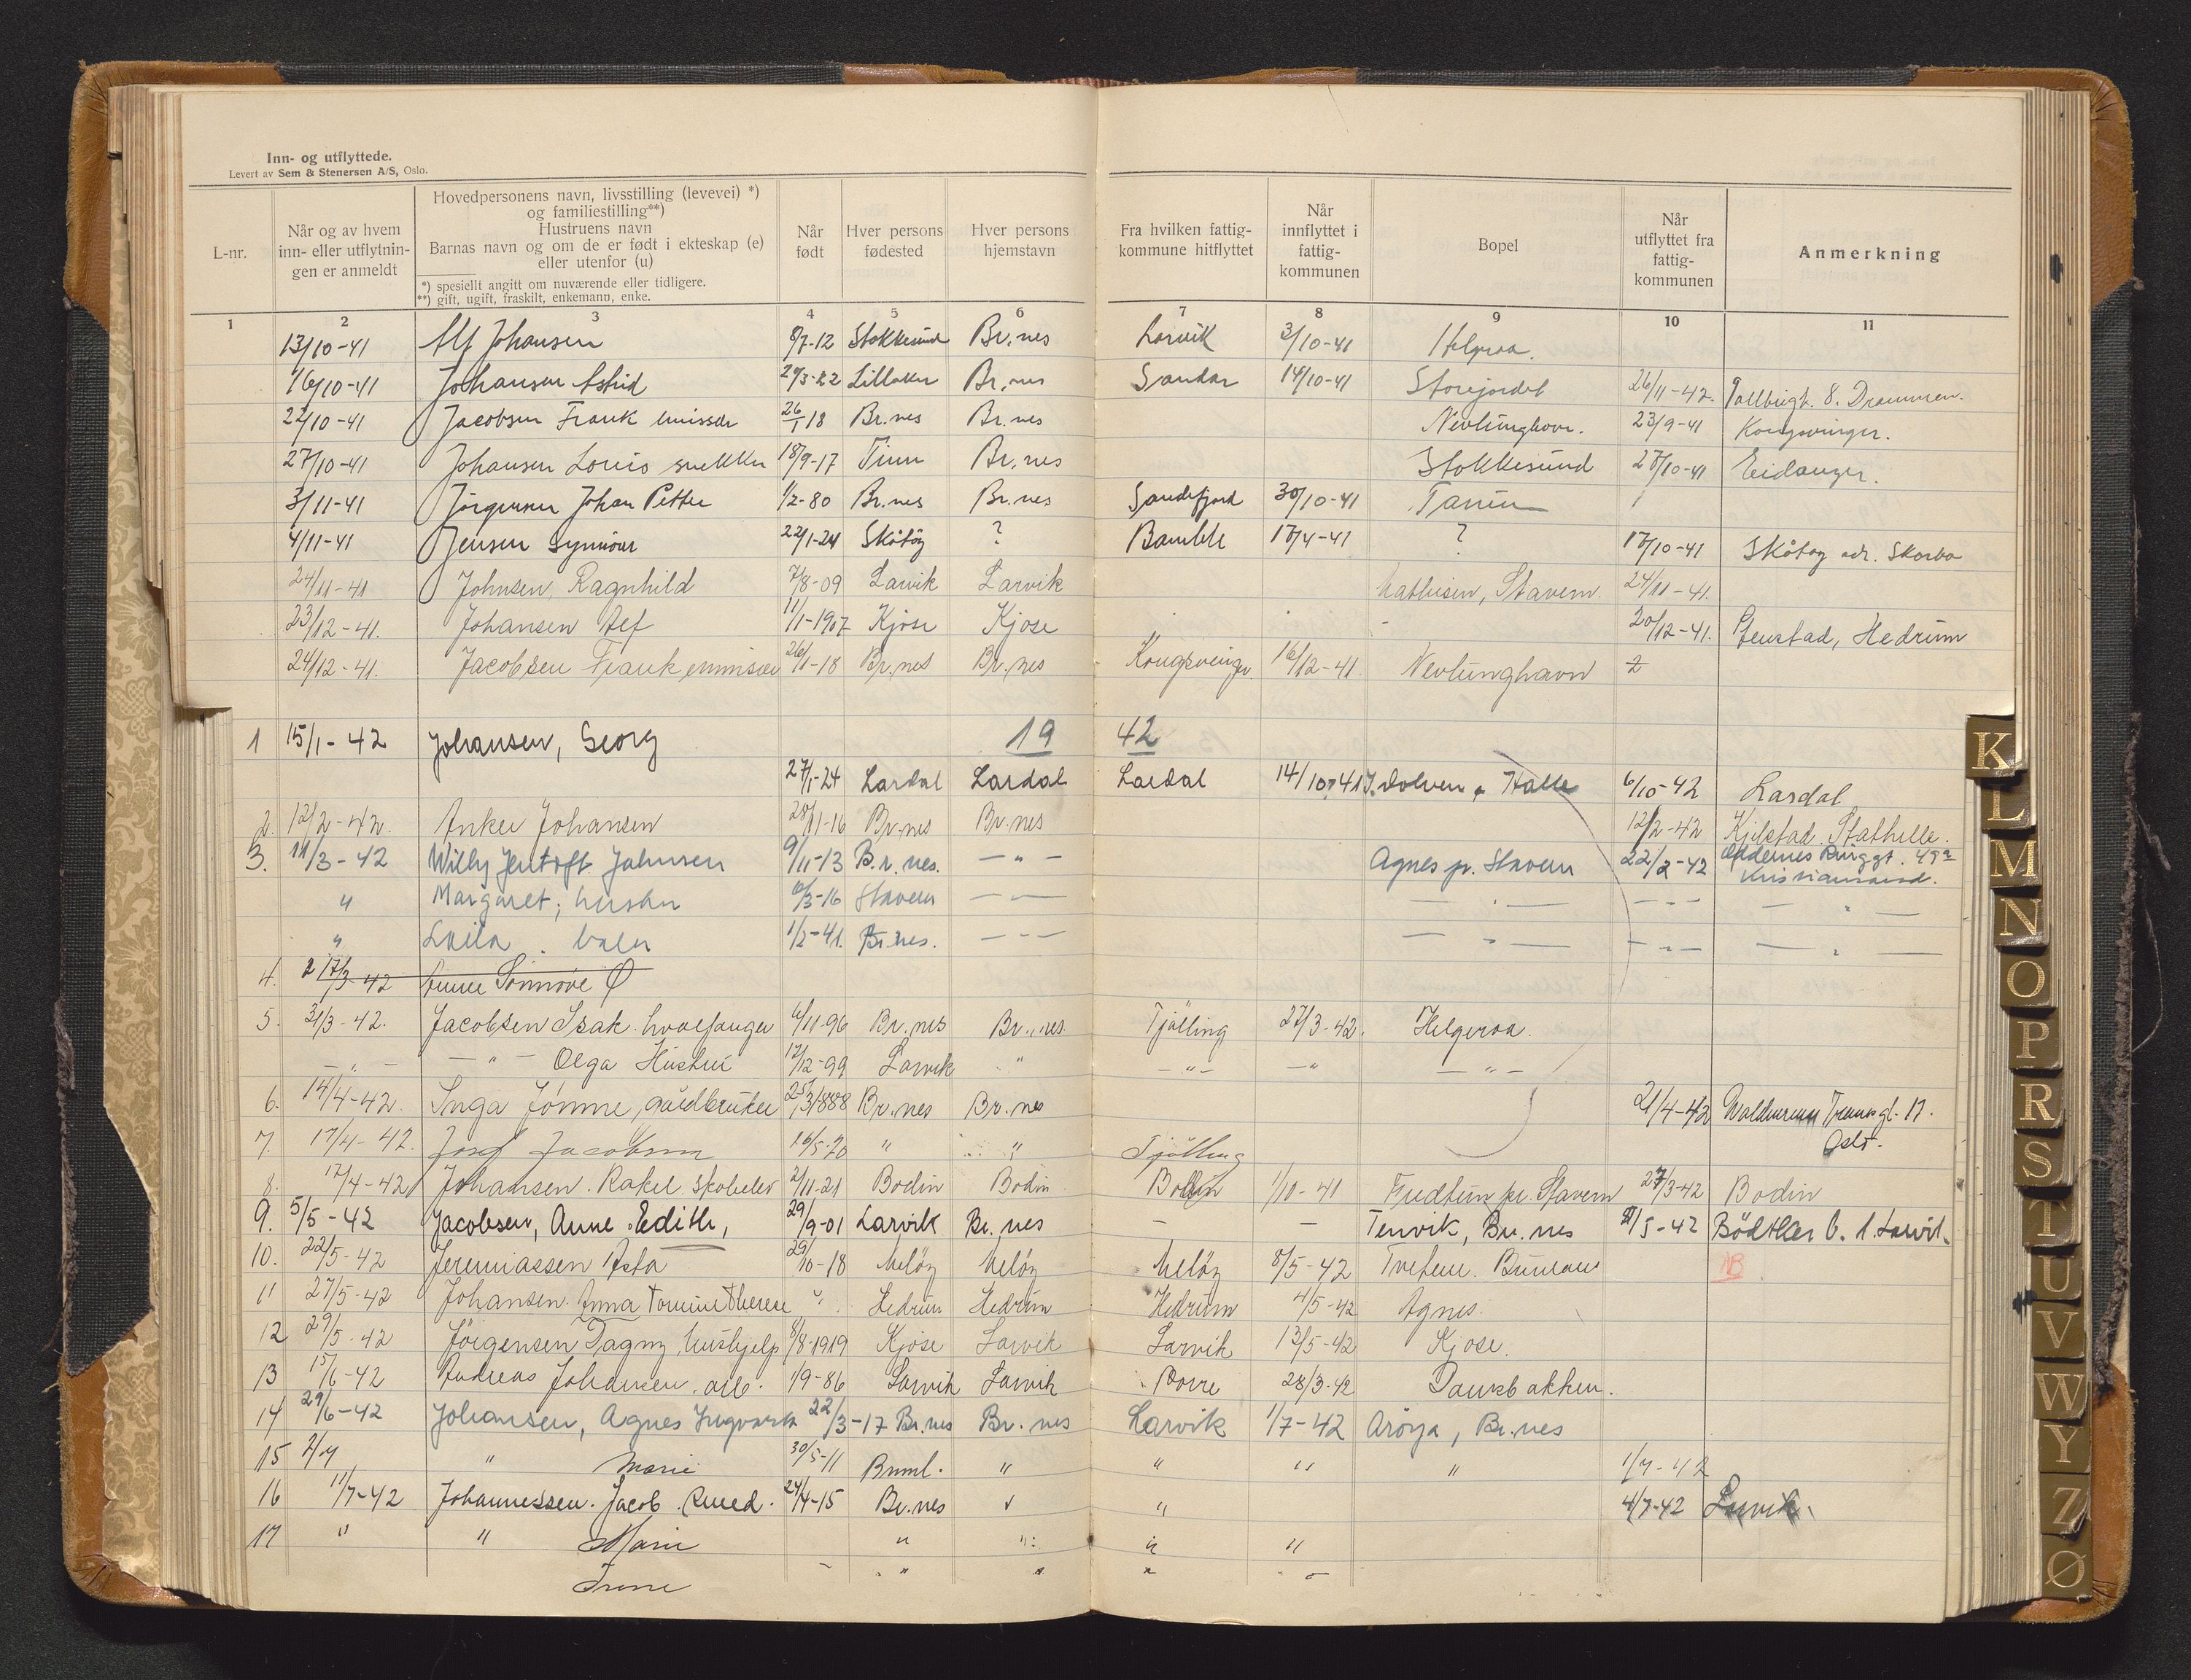 Inn- og utflyttede.
Levert av Sem & Stenersen A/S, Oslo.
L-nr.
Når og av hvem inn- eller utflytnin-gen er anmeldt
Hovedpersonens navn, livsstilling (levevei) *) og familiestilling**)
Hustruens navn
Barnas navn og om de er født i ekteskap (e) eller utenfor (u)
*) spesiellt angitt om nuværende eller tidligere.
**) gift, ugift, fraskilt, enkemann, enke.
Når født
Hver persons fødested
Hver persons hjemstavn
Fra hvilken fattig-kommune hitflyttet
Når innflyttet i fattig-kommunen
Bopel
Når utflyttet fra fattig-kommunen
Anmerkning
1 2 3 4 5 6 7 8 9 10 11
13/10-41 Alf Johansen 8/7-12 Stokkesund Br.nes Larvik 3/10-41 Helgeroa.
16/10-41 Johansen Astrid 29/3-22 Lillaker Br.nes Sandar 14/10-41 Storejordet 26/11-42. Tollbugt. 8. Drammen.
22/10-41 Jacobsen Frank 26/1 18 Br.nes Br.nes Nevlunghavn. 23/9-41 Kongsvinger.
27/10-41 Johansen Louis snekker 18/9-17 Tinn Br.nes Stokkesund 27/10-41 Eidanger.
3/11-41 Jørgensen Johan Petter 1/2-80 Br.nes Br.nes Sandefjord 30/10-41 Tanum
4/11-41 Jensen Synnøve 22/1-24 Skåtøy ? Bamble 17/4-41 ? 17/10-41 Skåtøy adr.
24/11-41 Johnsen, Ragnhild 7/8-09 Larvik Larvik Mathisen, Stavern. 24/11-41.
23/12-41. Johansen 11/1-1907 Kjose Kjose 20/12-41. Stenstad, Hedrum
24/12-41. Jacobsen Frank 26/1-18 Br.nes Br.nes Kongsvinger 16/12-41. Nevlunghavn
19 42
1 15/1-42 Johansen, Georg
27/1-24 Lardal Lardal Lardal 14/10-41 J. Dolven, Halle 6/10-42 Lardal
2. 12/2-42. Anker Johansen 28/11-16 Br.nes Br.nes 12/2-42 Stathelle.
3. 11/3-42 Willy Jentoft Johnsen 9/11-13 Br.nes. — " — Agnes pr. Stavern 22/2-42 49 Kristiansand.
" Margaret; hustru 10/3-16 Stavern — — — " — — " — — " —
" Laila. 1/2-41. Br.nes. — — — " — — " — — " —
4. 17/3-42
5. 31/3-42. Jacobsen Isak. hvalfanger 6/11-96 Br.nes Br.nes. Tjølling 27/3-42. Helgeroa.
— " — — " — Olga Hustru 12/12-99 Larvik " — " — — " — " —
6. 14/4-42. Inga Jønne, gårdbruker 25/3 1888 Br.nes Br.nes 21/4-42 Waldemar Tranes gt. 17. Oslo.
7. 17/4-42. Josef Jacobsen 16/5-20 " " Tjølling
8. 17/4-42 Johansen. Rakel 2/11-21 Bodin Bodin Bodin 1/10-41 pr. Stavern 27/3-42 Bodin
9. 5/5-42 Jacobsen, Anne Edith, 29/9-01 Larvik Br.nes — — Tenvik, Br.nes 2/5-42 Bödtker 1. Larvik.
10. 22/5-42 Jeremiassen Asta 29/10-18 Meløy Meløy Meløy 8/5-42 NB
11 27/5-42 Johansen. Anna Therese " Hedrum Hedrum Hedrum 4/5-42 Agnes.
12 29/5-42 Jörgensen Dagny, hushjelp 8/8-1919 Kjose Larvik Larvik 13/5-42 Kjose.
13 15/6-42 Andreas Johansen. arb. 1/9-86 Larvik Larvik Borre 28/3-42
14 29/6-42 Johansen, Agnes Ingvarda 22/3-17 Br.nes Br.nes Larvik 1/7-42 Arøya, Br.nes
15 2/7 " Marie 30/5-11 Brunl. " " " " 1/7-42
16 11/7-42 Johannessen. Jacob. 24/4-15 Br.nes " 4/7-42 Larvik
17 " " Marie " " " "
Irene " " "
K
L
M
N
O
P
R
S
T
U
V
W
Y
Z
Ø